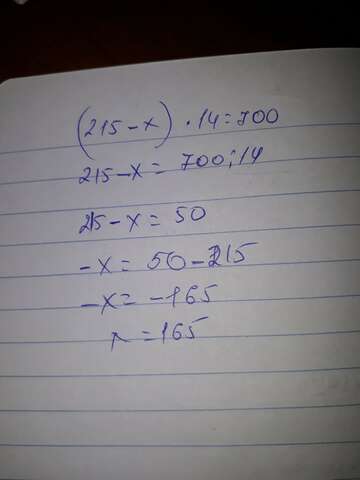 (215-x) · 14=700
215-x= 700:14
215-x=50
-x= 50-215
-x= -165
x=165